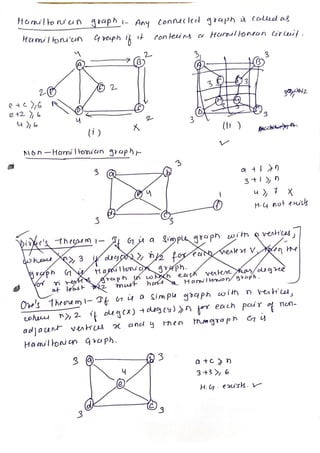 Hamiltonian graph :- Any connected graph is called as
Hamiltonian Graph if it contains a Hamiltonian Circuit.
4 2 3 3
A B A B
2 2 3 3
e+c ≥ 6
e+2 ≥ 6
4 ≥ 6
4 2 3 3
(i) X (ii) ✓
Non-Hamiltonian graph:-
3 3
a b
4
3
a + 1 ≥ n
3 + 1 ≥ n
4 ≥ 7 X
H.G not exists
Dirac's Theorem :- If G is a simple graph with n vertices,
where n ≥ 3 if deg(v) ≥ n/2 for each vertex V, then the
graph G is Hamiltonian graph.
or n vertex graph in which each vertex has degree
at least n/2 must have a Hamiltonian graph.
Ore's Theorem :- If G is a simple graph with n vertices,
where n ≥ 2 if deg(x) + deg(y) ≥ n for each pair of non-
adjacent vertices x and y then the graph G is
Hamiltonian Graph.
3 a b 3
4
e
3 d c 3
a + c ≥ n
3 + 3 ≥ 6
H.G. exists. ✓